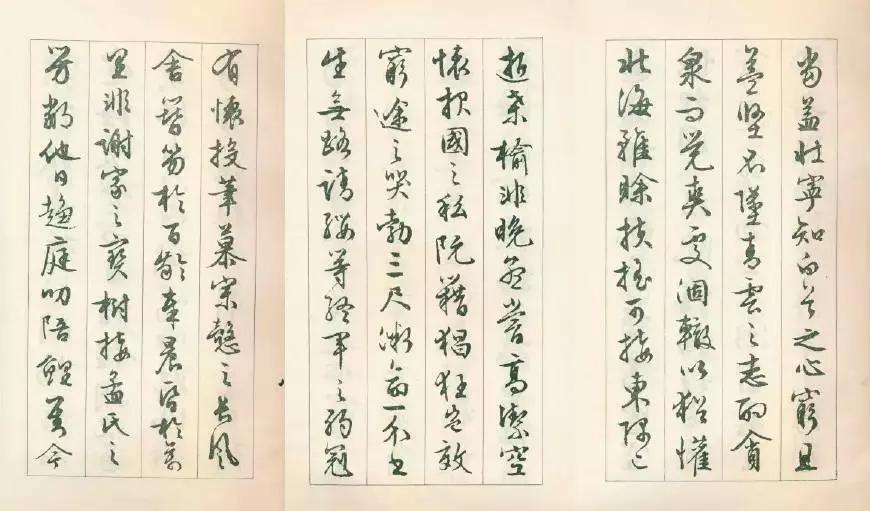 當益壯寧知白首之心窮且
益堅不墜青雲之志酌貪
泉而覺爽處涸轍以猶懽
北海雖賒扶搖可接東隅已
逝桑榆非晚孟嘗高潔空
懷報國之私阮籍猖狂豈效
窮途之哭勃三尺微命一介書
生無路請纓等終軍之弱冠
有懷投筆慕宗愨之長風
舍簪笏於百齡奉晨昏於萬
里非謝家之寶樹接孟氏之
芳鄰他日趨庭叨陪鯉對今